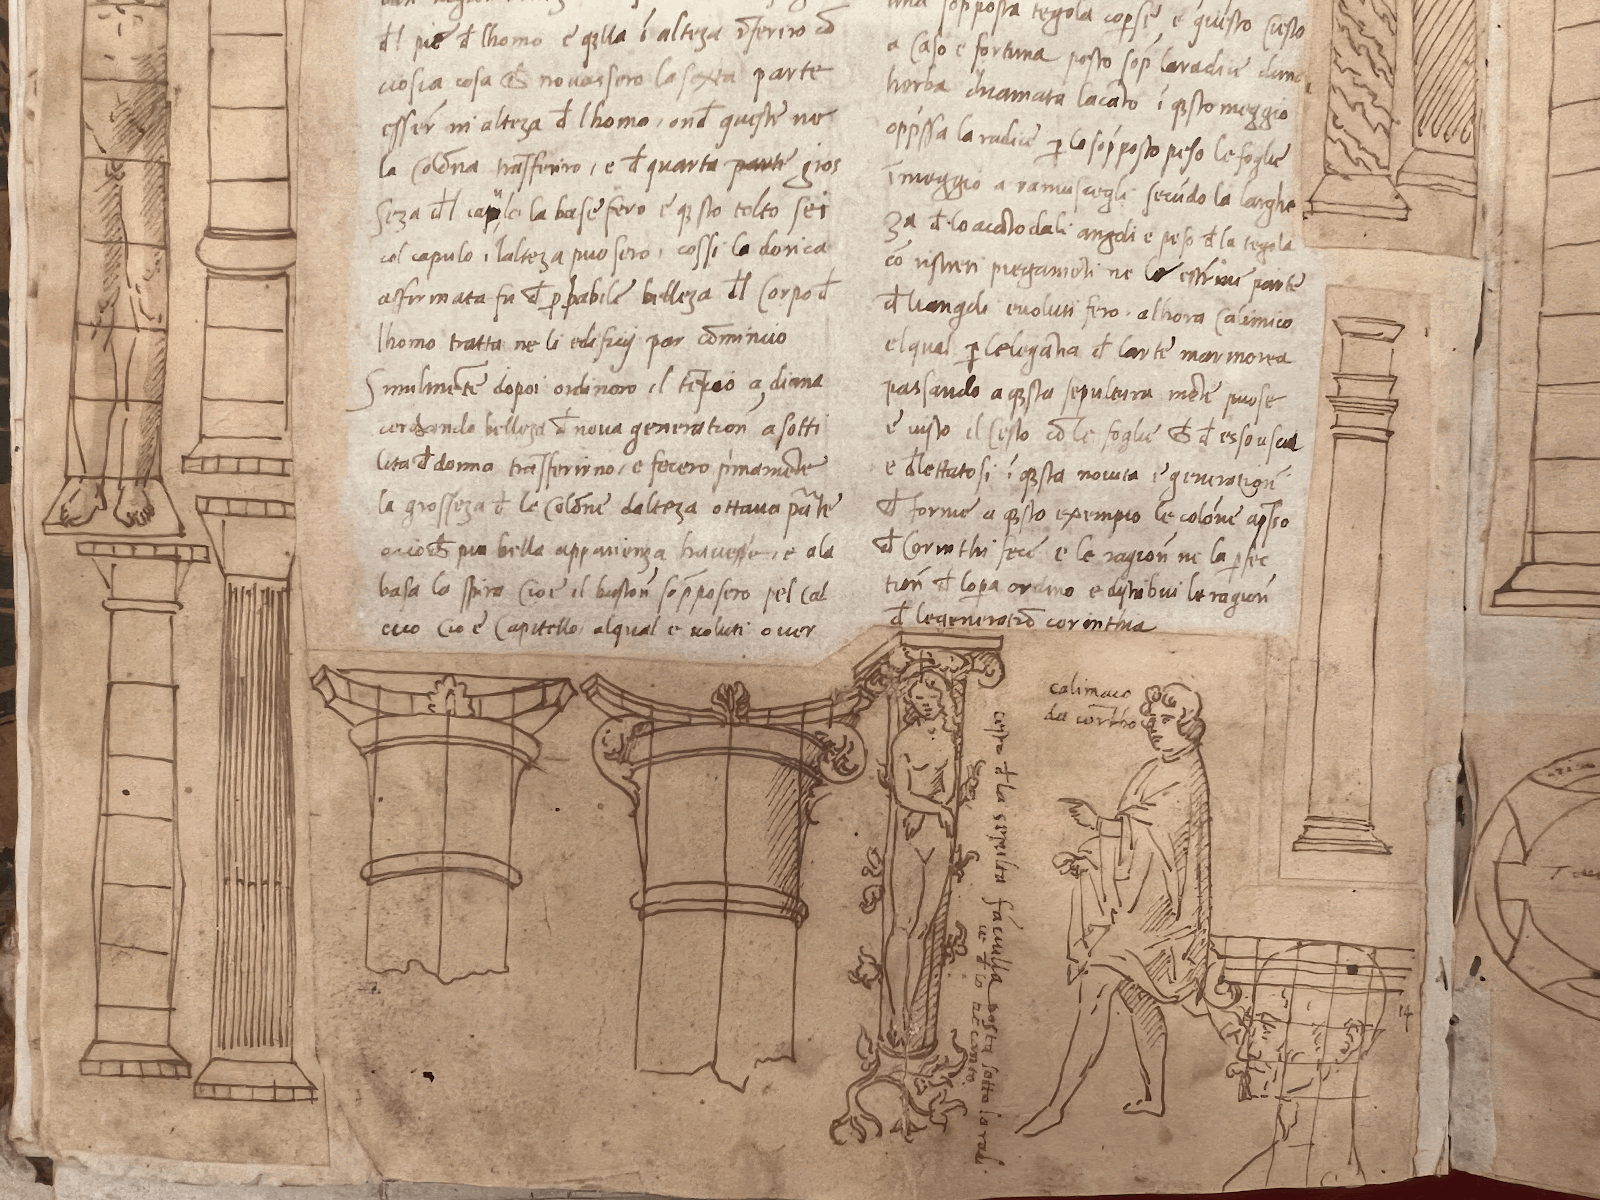 đl pie đ lhomo e q̃lla ĩ alteza
cosa novassero la sexta parte
esser in alteza đ lhomo, onđ queste ne
la colõna trasferiro, e đ quarta parte gros
seza đl la base fero e q̃sto tolto sei
col capulo, ĩ lalteza puosero, cossi la dorica
affirmata fu đ ꝓbabile belleza đl corpo đ
lhomo tratta ne li edificij par comincio
Simulmẽte dopoi ordinoro il a diana
cercando belleza đ nova generation̄ a sotti
lita đ donna trasferirno, e fecero primamẽte
la grosseza đ le colõne dalteza ottava pãte
piu bella apparienza havesse, e a la
basa la spira cioe il baston̄ sopposero pel cal
ceo cio e capitello, al qual e voluti over
una sopposta tegola copse, e questo cesto
a caso e fortuna posto sop̃ la radice duna
herba chiamata lacãto ĩ q̃sto meggio
opp̃ssa la radice ꝑ lo sopposto peso le foglie
ĩ meggio a ramuscegli secũdo la larghe
za đ lo acãto da li angoli e peso đ la tegola
cõ ristreti piegamẽti ne le estrime parte
đ li angoli evoluti fero, alhora Calimico
el qual ꝑ le legãtia đ larte marmorea
passando a q̃sta sepultura mẽte puose
e visto il cesto cõ le foglie đ esso uscia
e đlettatosi ĩ q̃sta novita e generation̄
đ forme a q̃sto exempio le colõne ap̃so
đ Corinthi fece e le ragion̄ ne la ꝑfec
tion̄ đ lopa ordino e distribui le ragion̄
đ le generatiõ corinthia
calimaco
da corĩtho
cesto đ la sepulta fãciulla posta sotto la radi
ce đ lo acanto